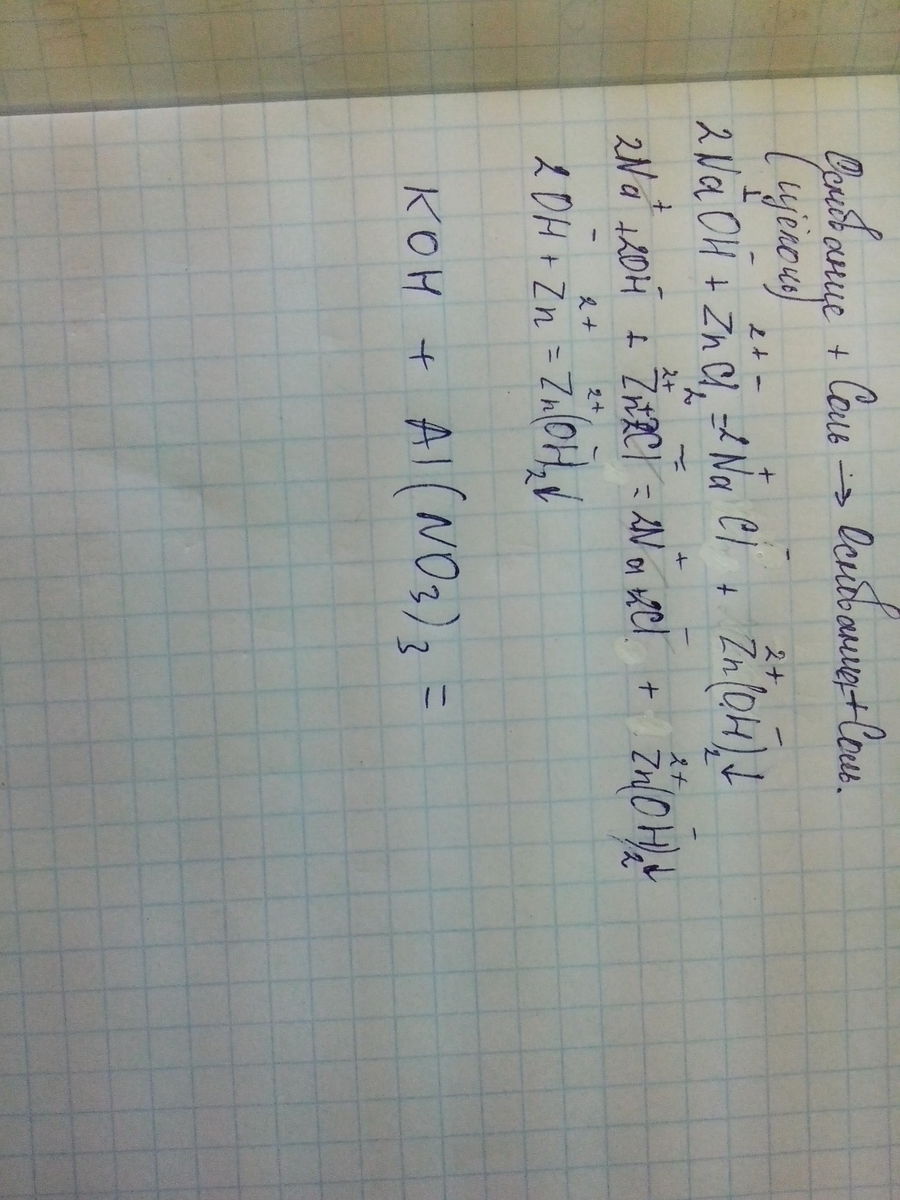 Основание + Соль → Основание + Соль.
(щёлочь)
2Na⁺OH⁻ + Zn²⁺Cl₂⁻ = 2Na⁺Cl⁻ + Zn²⁺(OH)₂⁻↓
2Na⁺ + 2OH⁻ + Zn²⁺ + 2Cl⁻ = 2Na⁺ + 2Cl⁻ + Zn²⁺(OH)₂⁻↓
2OH⁻ + Zn²⁺ = Zn²⁺(OH)₂⁻↓
KOH + Al(NO₃)₃ =